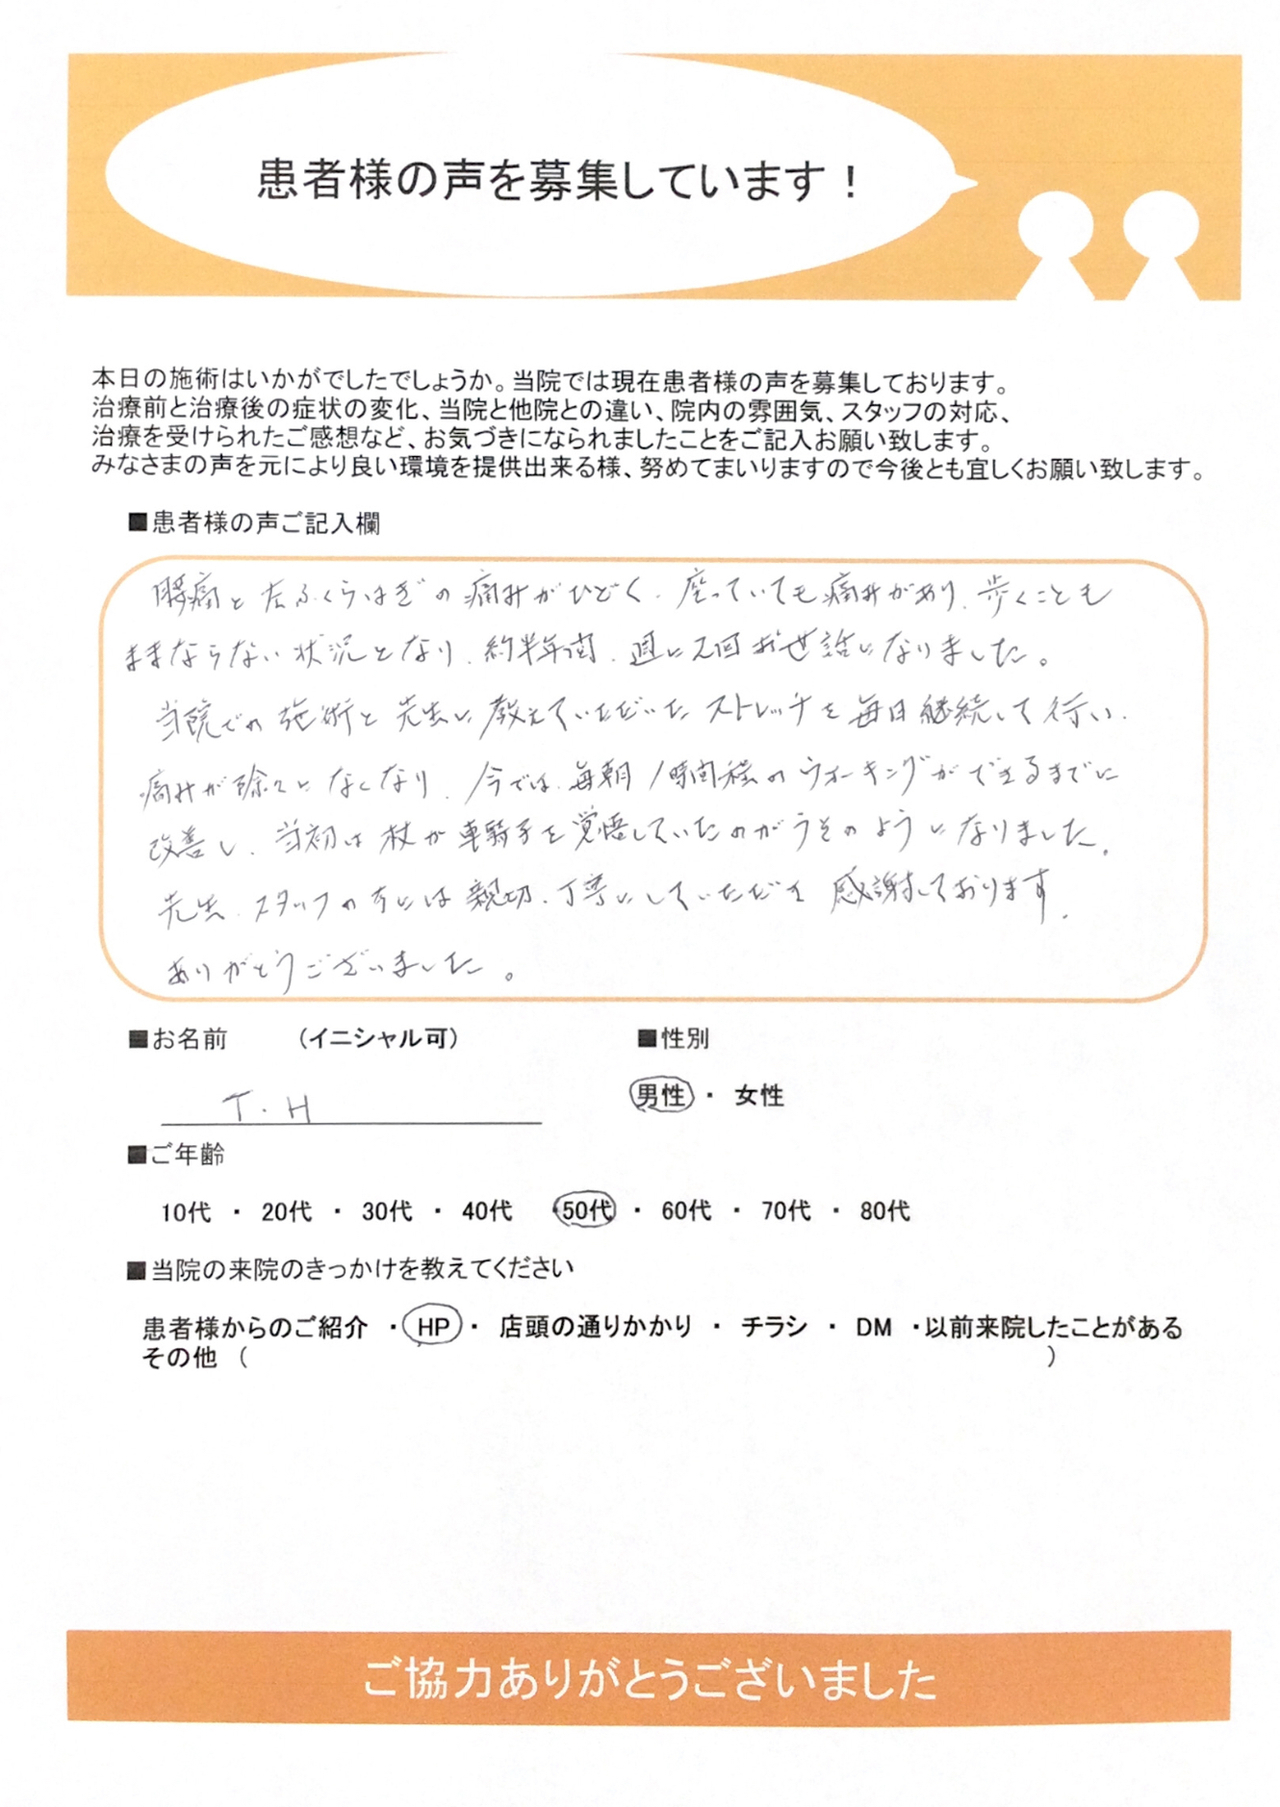 患者様の声を募集しています!
本日の施術はいかがでしたでしょうか。当院では現在患者様の声を募集しております。
治療前と治療後の症状の変化、当院と他院との違い、院内の雰囲気、スタッフの対応、
治療を受けられたご感想など、お気づきになられましたことをご記入お願い致します。
みなさまの声を元により良い環境を提供出来る様、努めてまいりますので今後とも宜しくお願い致します。
■患者様の声ご記入欄
腰痛と左ふくらはぎの痛みがひどく、座っていても痛みがあり、歩くことも
ままならない状況となり、約半年間、週に2回お世話になりました。
当院での施術と先生に教えていただいたストレッチを毎日継続して行い、
痛みが除々になくなり、今では毎朝1時間程のウォーキングができるまでに
改善し、当初は杖か車椅子を覚悟していたのがうそのようになりました。
先生、スタッフの方には親切、丁寧にしていただき感謝しております。
ありがとうございました。
■お名前 (イニシャル可) ■性別
T.H 男性 ・ 女性
■ご年齢
10代 ・ 20代 ・ 30代 ・ 40代 ・ 50代 ・ 60代 ・ 70代 ・ 80代
■当院の来院のきっかけを教えてください
患者様からのご紹介 ・ HP ・ 店頭の通りかかり ・ チラシ ・ DM ・以前来院したことがある
その他 ( )
ご協力ありがとうございました